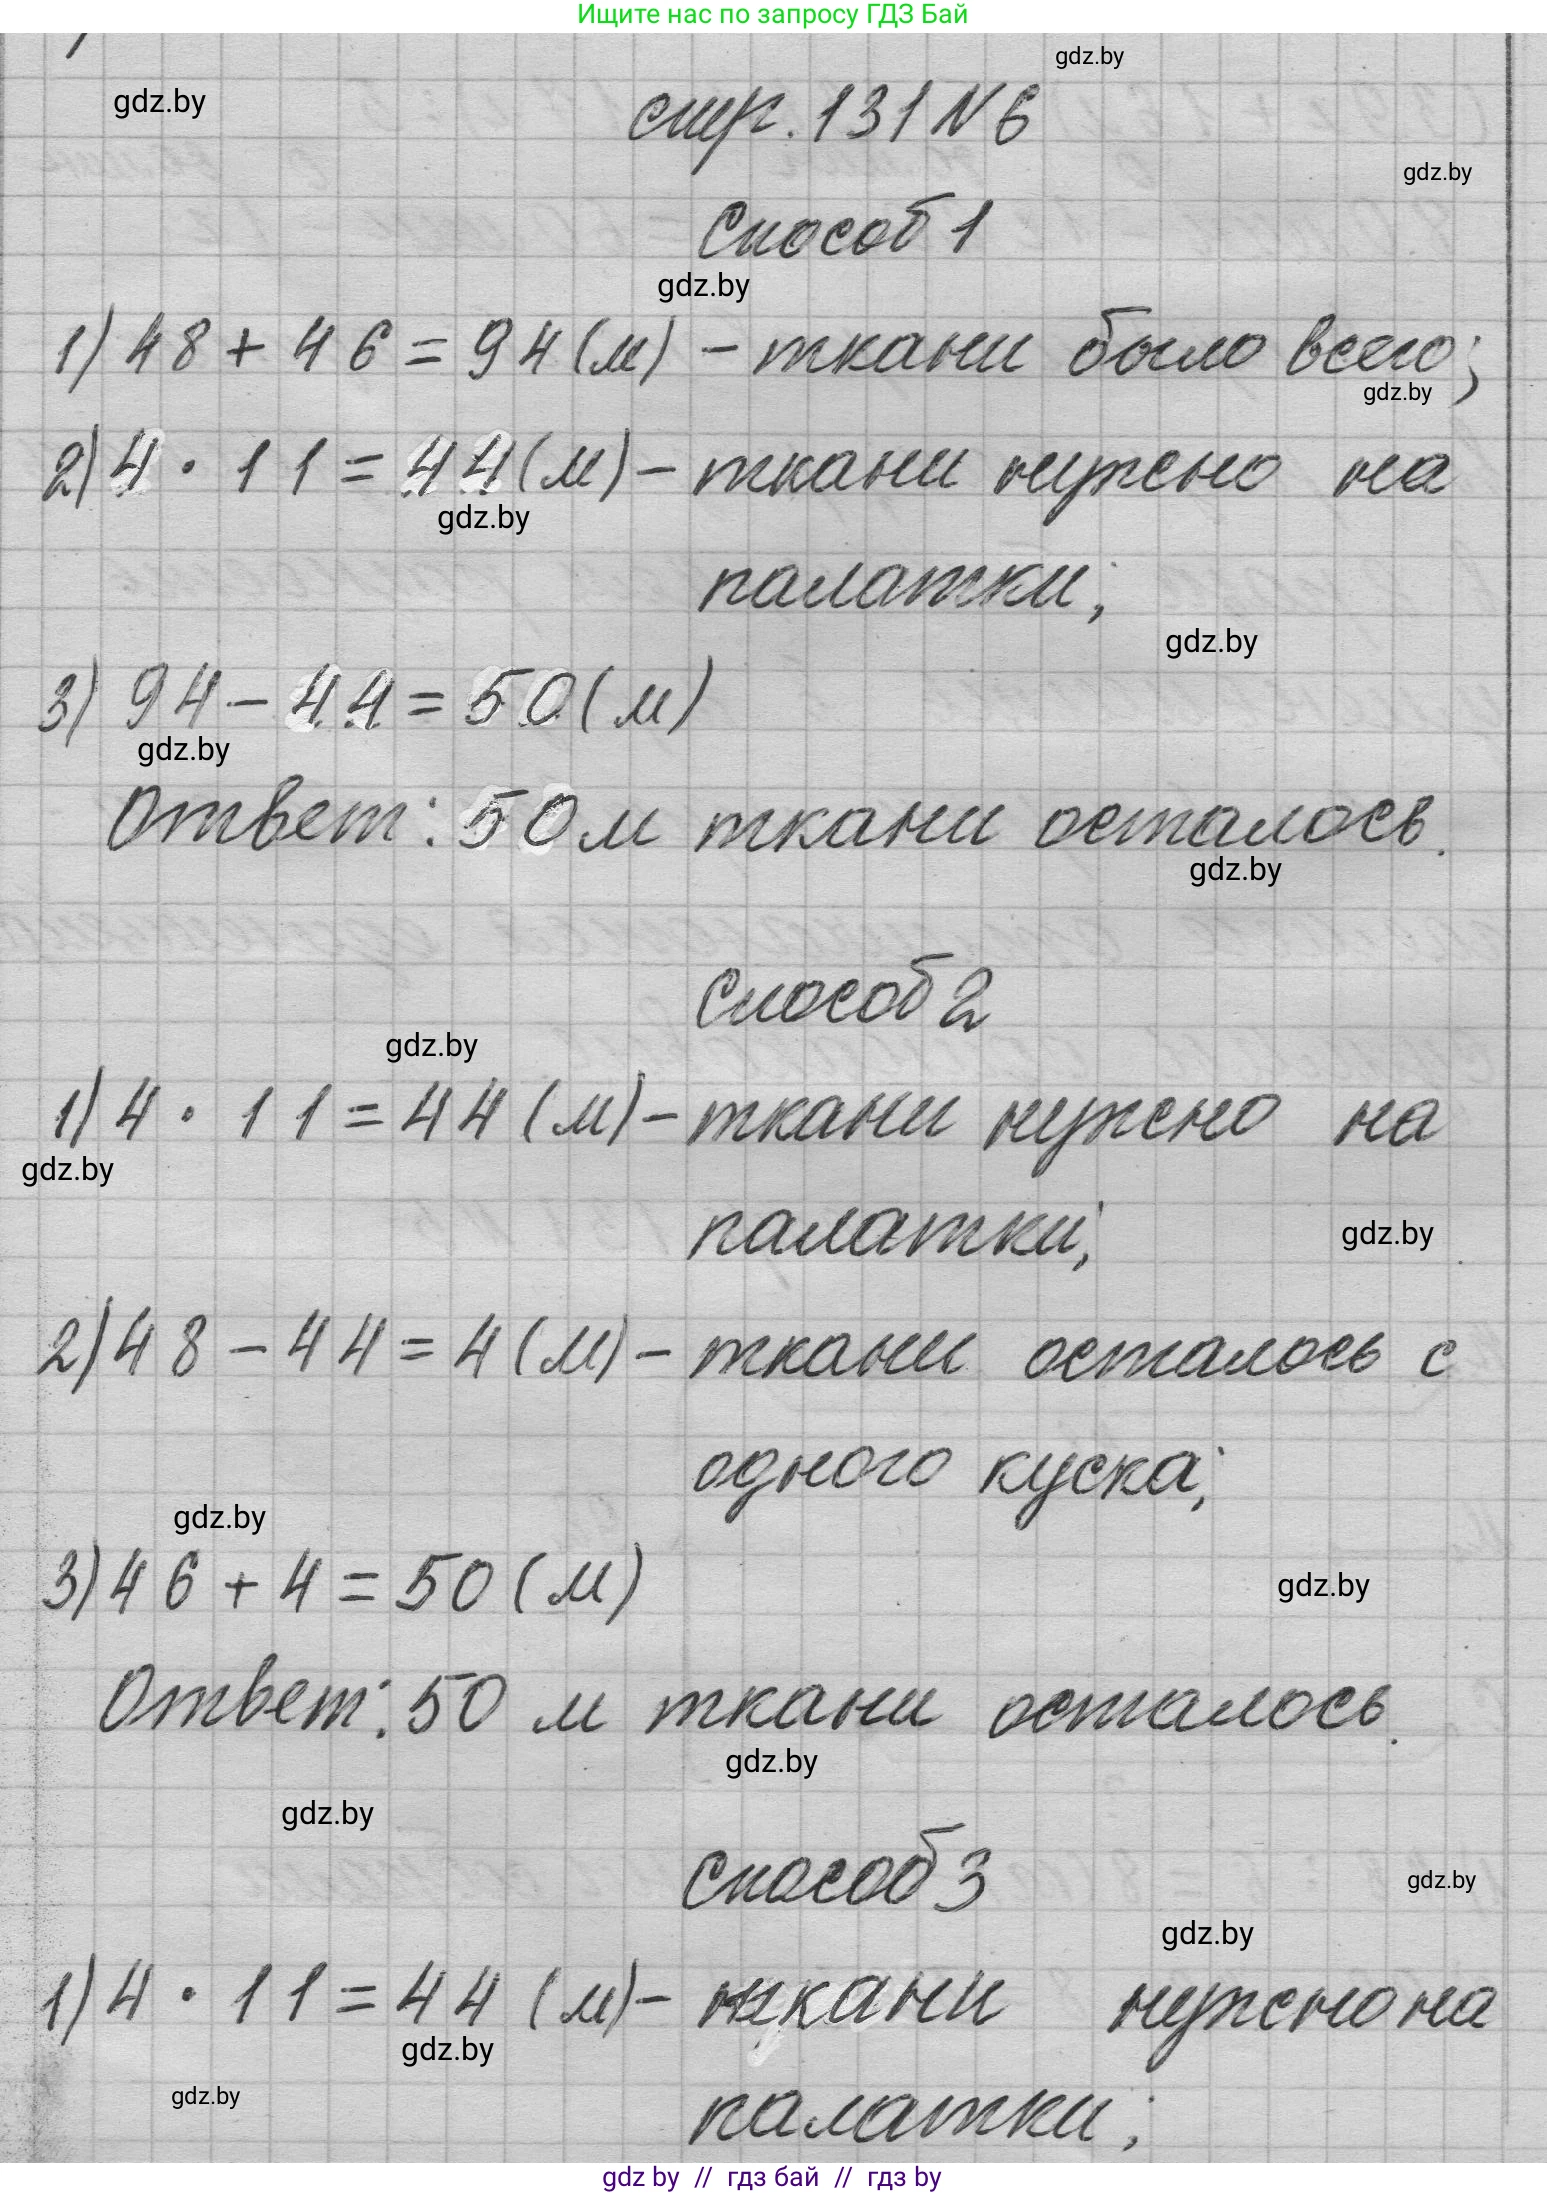 Ищите нас по запросу ГДЗ Бай
gdz.by
gdz.by
стр. 131 N 6
gdz.by
Способ 1
gdz.by
1) 48 + 46 = 94 (м) - ткани было всего;
gdz.by
2) 4 · 11 = 44 (м) - ткани нужно на
gdz.by
палатки;
gdz.by
3) 94 - 44 = 50 (м)
gdz.by
Ответ: 50 м ткани осталось.
gdz.by
Способ 2
gdz.by
1) 4 · 11 = 44 (м) - ткани нужно на
gdz.by
палатки;
gdz.by
2) 48 - 44 = 4 (м) - ткани осталось с
одного куска;
gdz.by
3) 46 + 4 = 50 (м)
gdz.by
Ответ: 50 м ткани осталось.
gdz.by
gdz.by
Способ 3
gdz.by
gdz.by
1) 4 · 11 = 44 (м) - ткани нужно на
gdz.by
gdz.by
палатки;
gdz by // гдз бай // гдз by